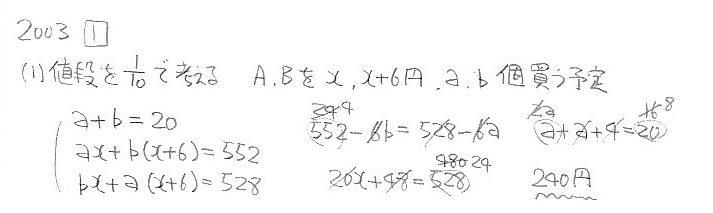 2003 1
(1) 値段を1/10で考える A,Bをx, x+6円, a, b個買う予定
a+b=20
ax+b(x+6)=552
bx+a(x+6)=528
552-6b=528-6a
24 4
a+a+4=20
2a 16 8
20x+48=528
480 24
240円